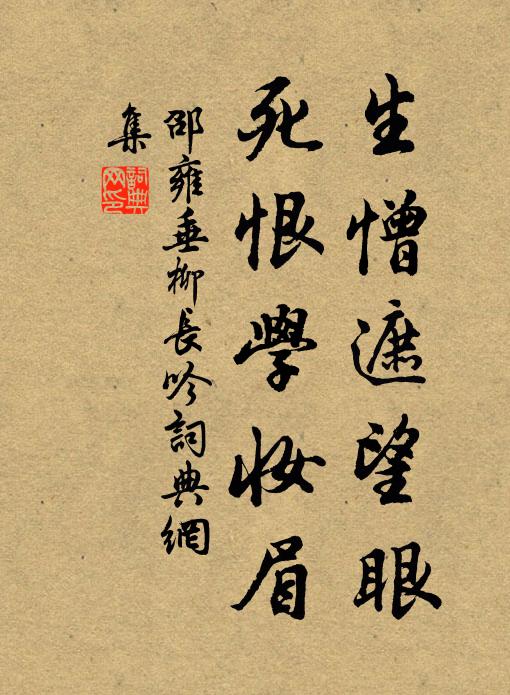 生憎遮望眼
死恨學妝眉
邵雍垂柳長吟詞典網
集
詞典
网印